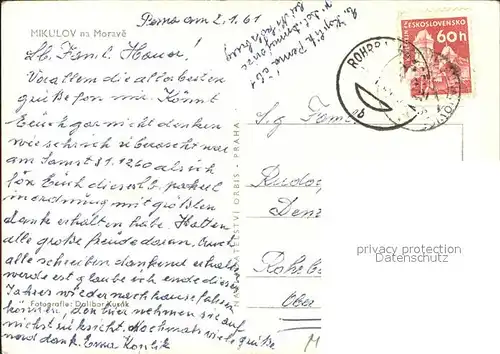 Perna am 2.1.61
MIKULOV na Moravě
Lb. Faml. Hauer!
Vor allem die allerbesten
grüße fon mir. Könnt
Euch gar nicht denken
wie ich mich überascht war
am Samst 31.1260 als ich
fon Euch dieses l. paket
in ordnung mit größten
dank erhalten habe. Hatten
alle große freude daran. Auch
alle schreiben dankend erhalten
werde est glaube ich ende dieses
Jahres wieder nach hause fahren
können, den hier nehmen sie auf
nichst rücksicht. Nochmals viele grüße
und dank. Erna Konlik
Fotografie: Dalibor Kusák
NAKLADATELSTVÍ ORBIS - PRAHA
ČESKOSLOVENSKO
60h
ROHRB
1b
S.g. Fam
Rudo
Den
Rohrb
Ober
privacy protection
Datenschutz